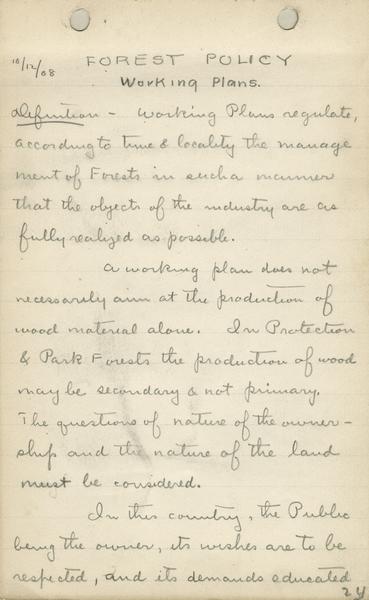 10/12/08
FOREST POLICY
Working Plans.
Definition - Working Plans regulate,
according to time & locality the manage
ment of Forests in such a manner
that the objects of the industry are as
fully realized as possible.
a working plan does not
necessarily aim at the production of
wood material alone. In Protection
& Park Forests the production of wood
may be secondary & not primary.
The questions of nature of the owner-
ship and the nature of the land
must be considered.
In this country, the Public
being the owner, its wishes are to be
respected, and its demands educated
24